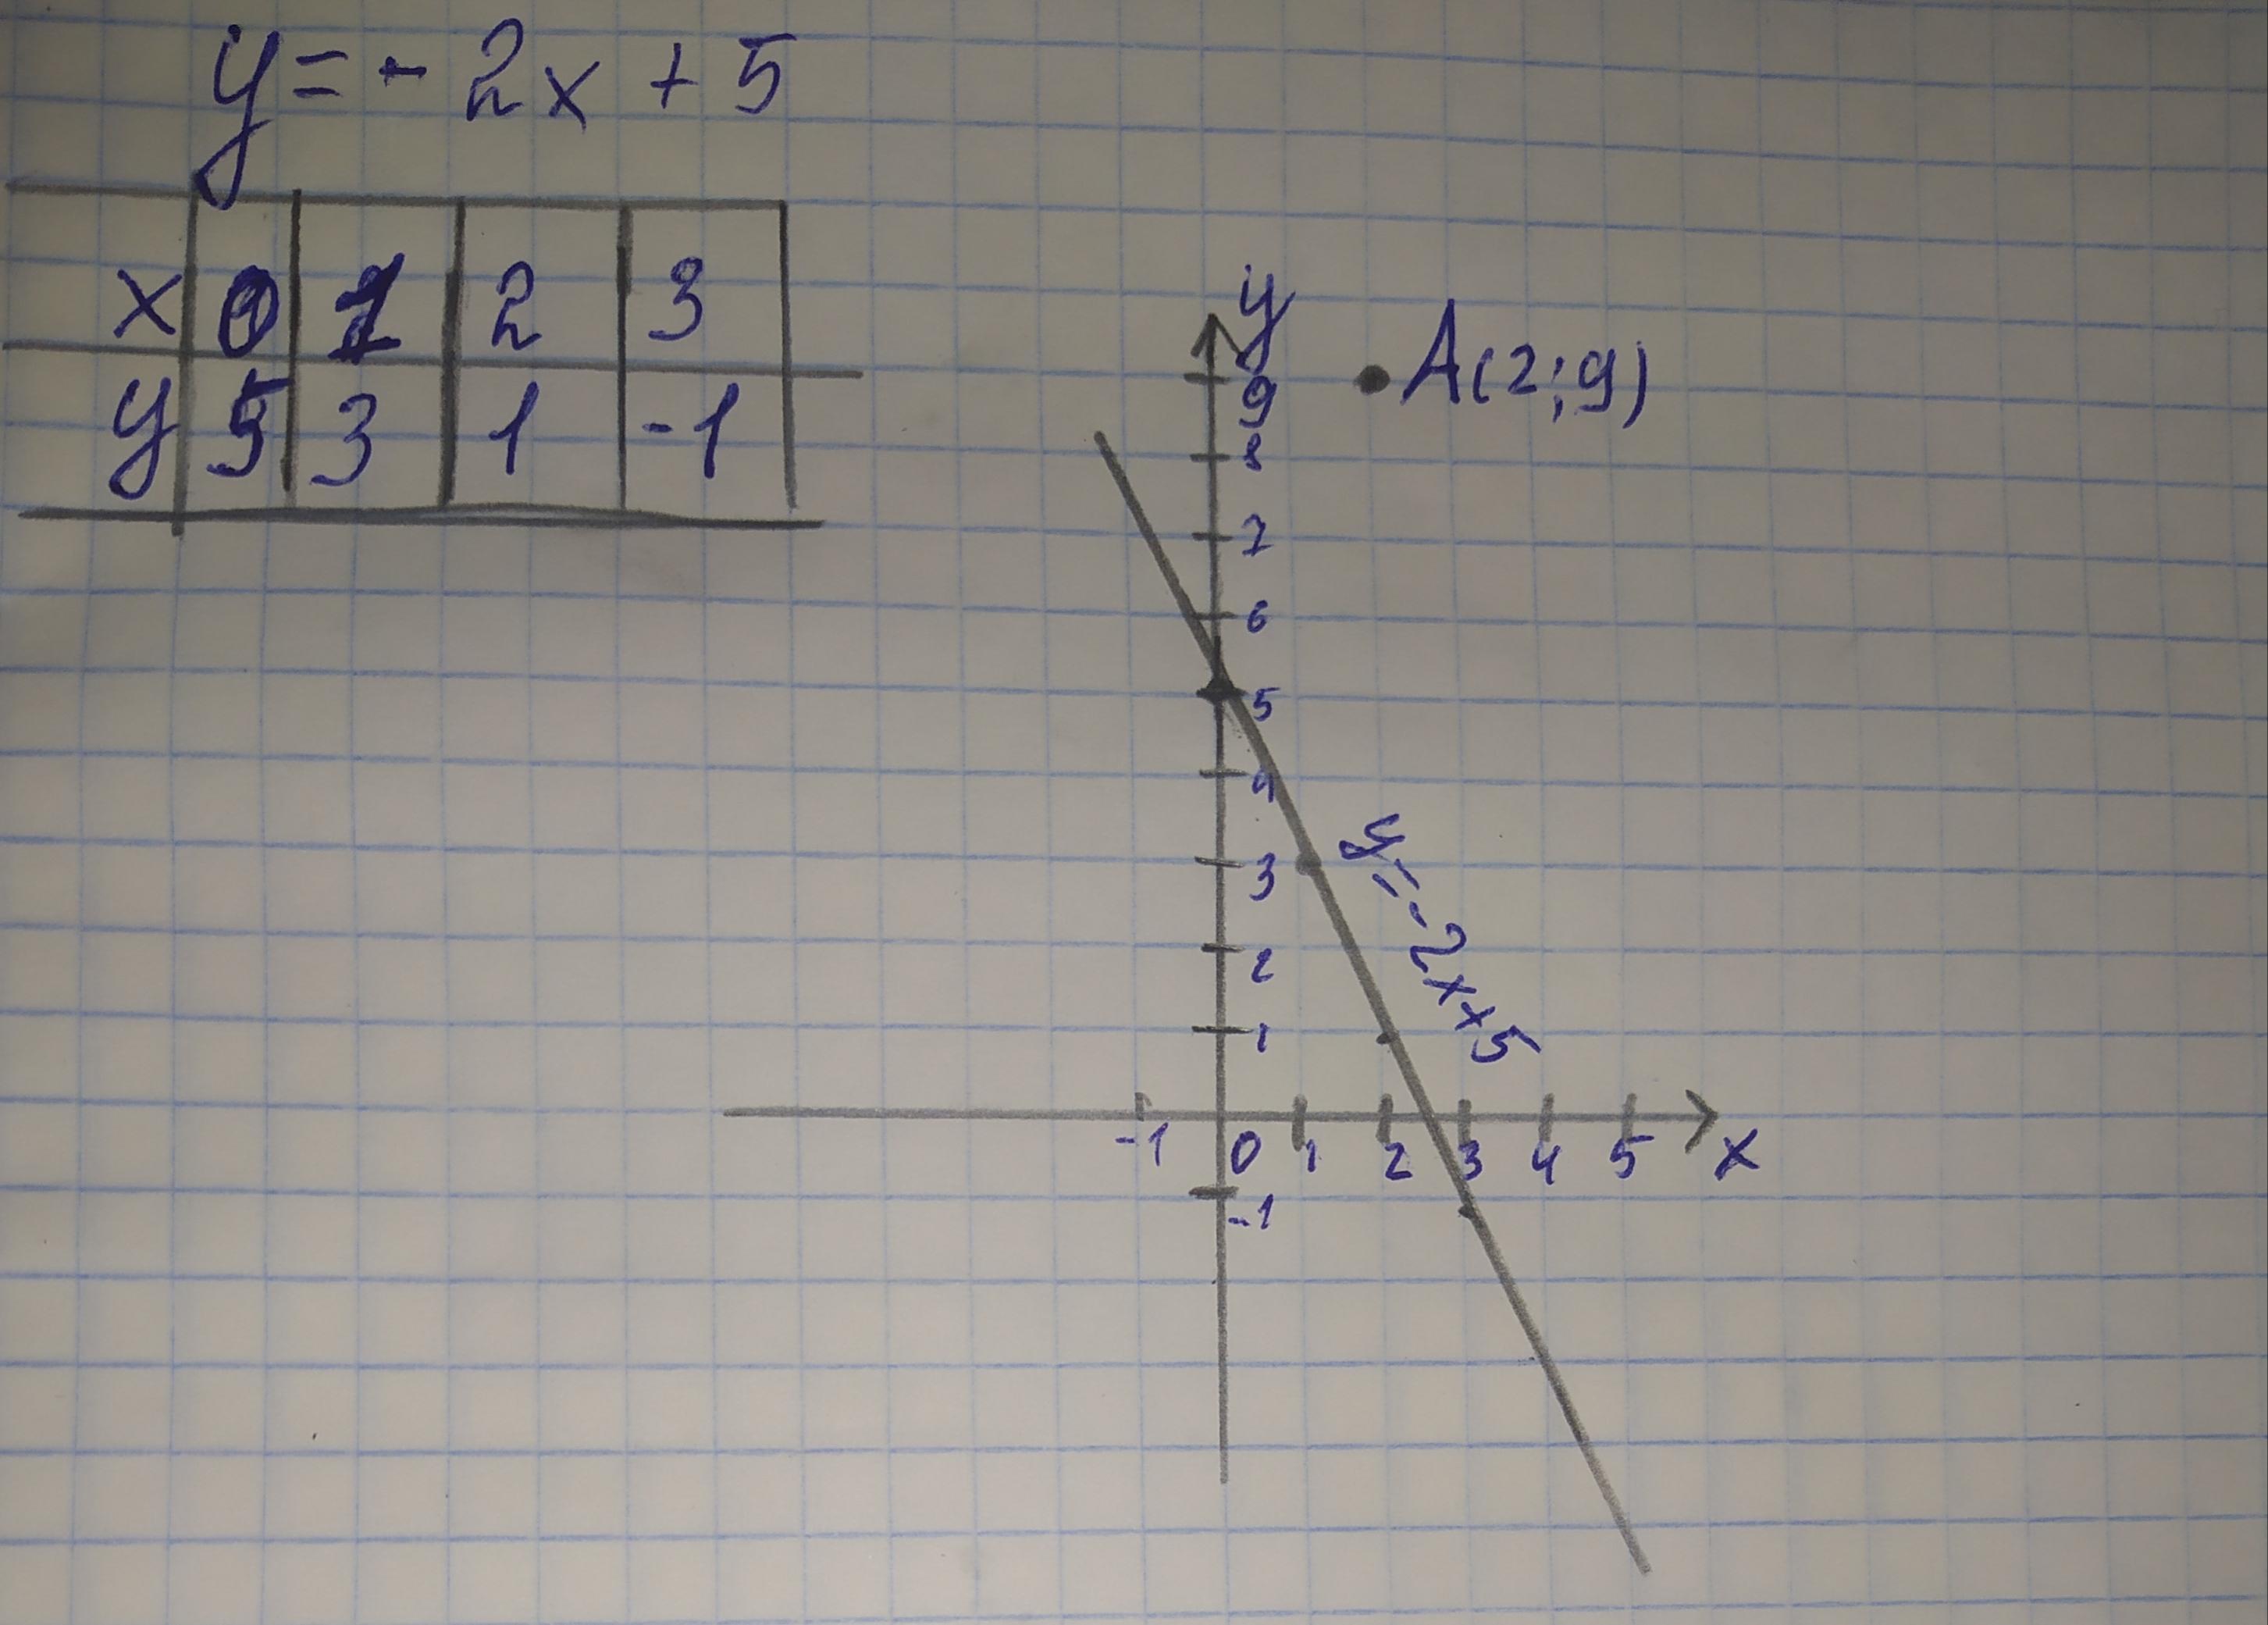 y = - 2x + 5
x 0 1 2 3
y 5 3 1 -1
y
A(2;9)
9
8
7
6
5
4
3
2
1
y=-2x+5
-1 0 1 2 3 4 5 x
-1